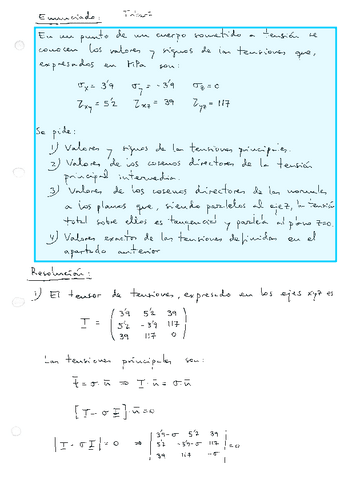 Enunciado:
En un punto de un cuerpo sometido a tensión se
conocen los valores y signos de las tensiones que,
expresados en MPa son:
σx = 3'9 σy = -3'9 σz = 0
τxy = 5'2 τxz = 39 τyz = 117
Se pide:
1) Valores y signos de las tensiones principales.
2) Valores de los cosenos directores de la tensión
principal intermedia.
3) Valores de los cosenos directores de las normales
a los planos que, siendo paralelos al eje z, la tensión
total sobre ellos es tangencial y paralela al plano z=0.
4) Valores exactos de las tensiones definidas en el
apartado anterior
Resolución:
1) El tensor de tensiones, expresado en los ejes xyz es
T = ( 3'9 5'2 39
5'2 -3'9 117
39 117 0 )
Las tensiones principales son:
t̄ = σ·n̄ ⇒ T·n̄ = σn̄
[T - σI]·n̄ = 0
|T - σI| = 0 ⇒ | 3'9-σ 5'2 39
5'2 -3'9-σ 117
39 117 -σ | = 0